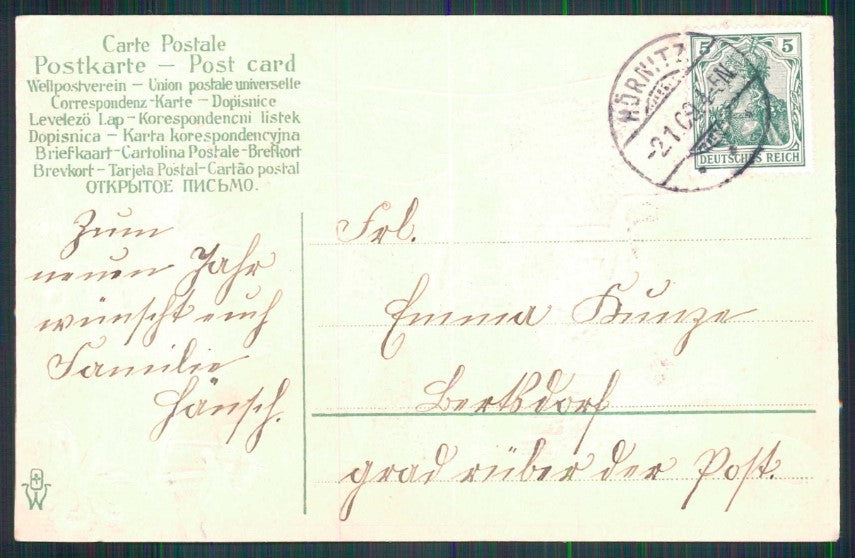 Carte Postale
Postkarte – Post card
Weltpostverein – Union postale universelle
Correspondenz-Karte – Dopisnice
Levelező Lap – Korespondencni listek
Dopisnica – Karta korespondencyjna
Briefkaart – Cartolina Postale – Brefkort
Brevkort – Tarjeta Postal – Cartão postal
ОТКРЫТОЕ ПИСЬМО.
HÖRNITZ
-2.1.09.
5 5
DEUTSCHES REICH
Zum
neuen Jahr
wünscht euch
Familie
Hänsch.
Frl.
Emma Kunze
Bertsdorf
grad rüber der Post.